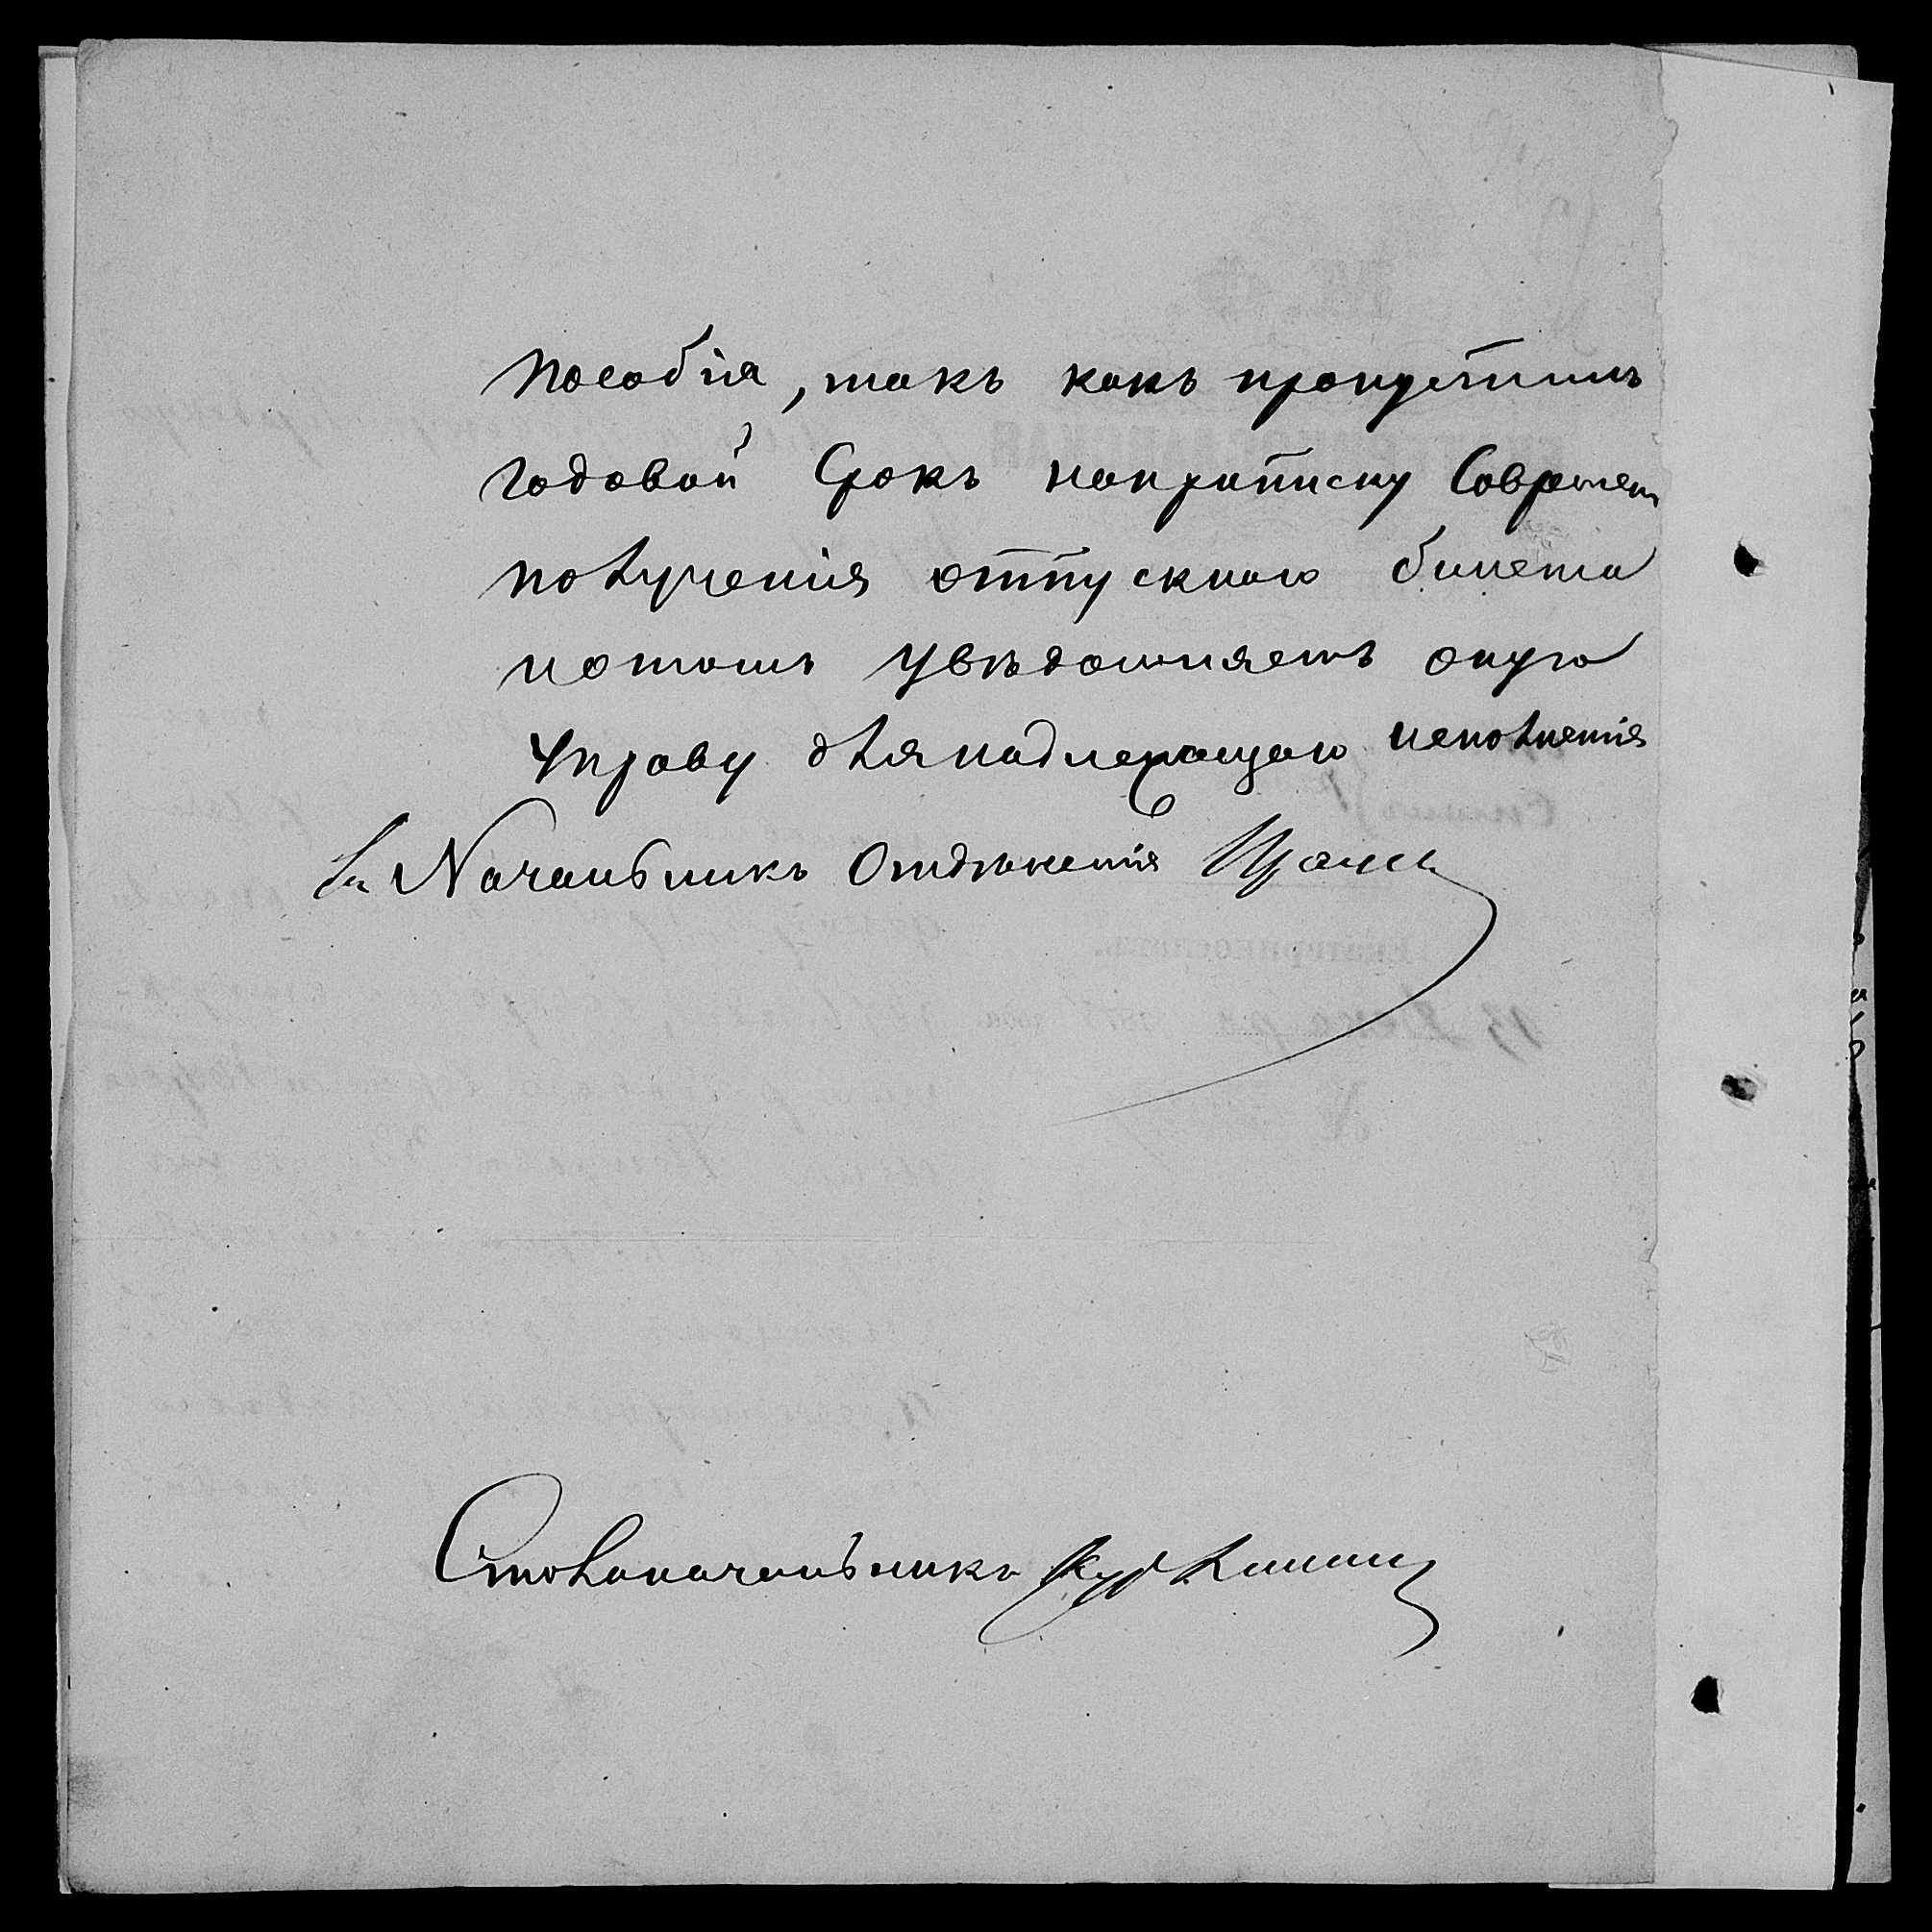 пособія, такъ какъ пропустилъ
годовой Срокъ наприписку Современ
полученія отпускнаго билета
иотомъ увѣдомляетъ оную
Управу длянадлежащаго исполненія
За Начальникъ Отдѣленія
Столоначальникъ